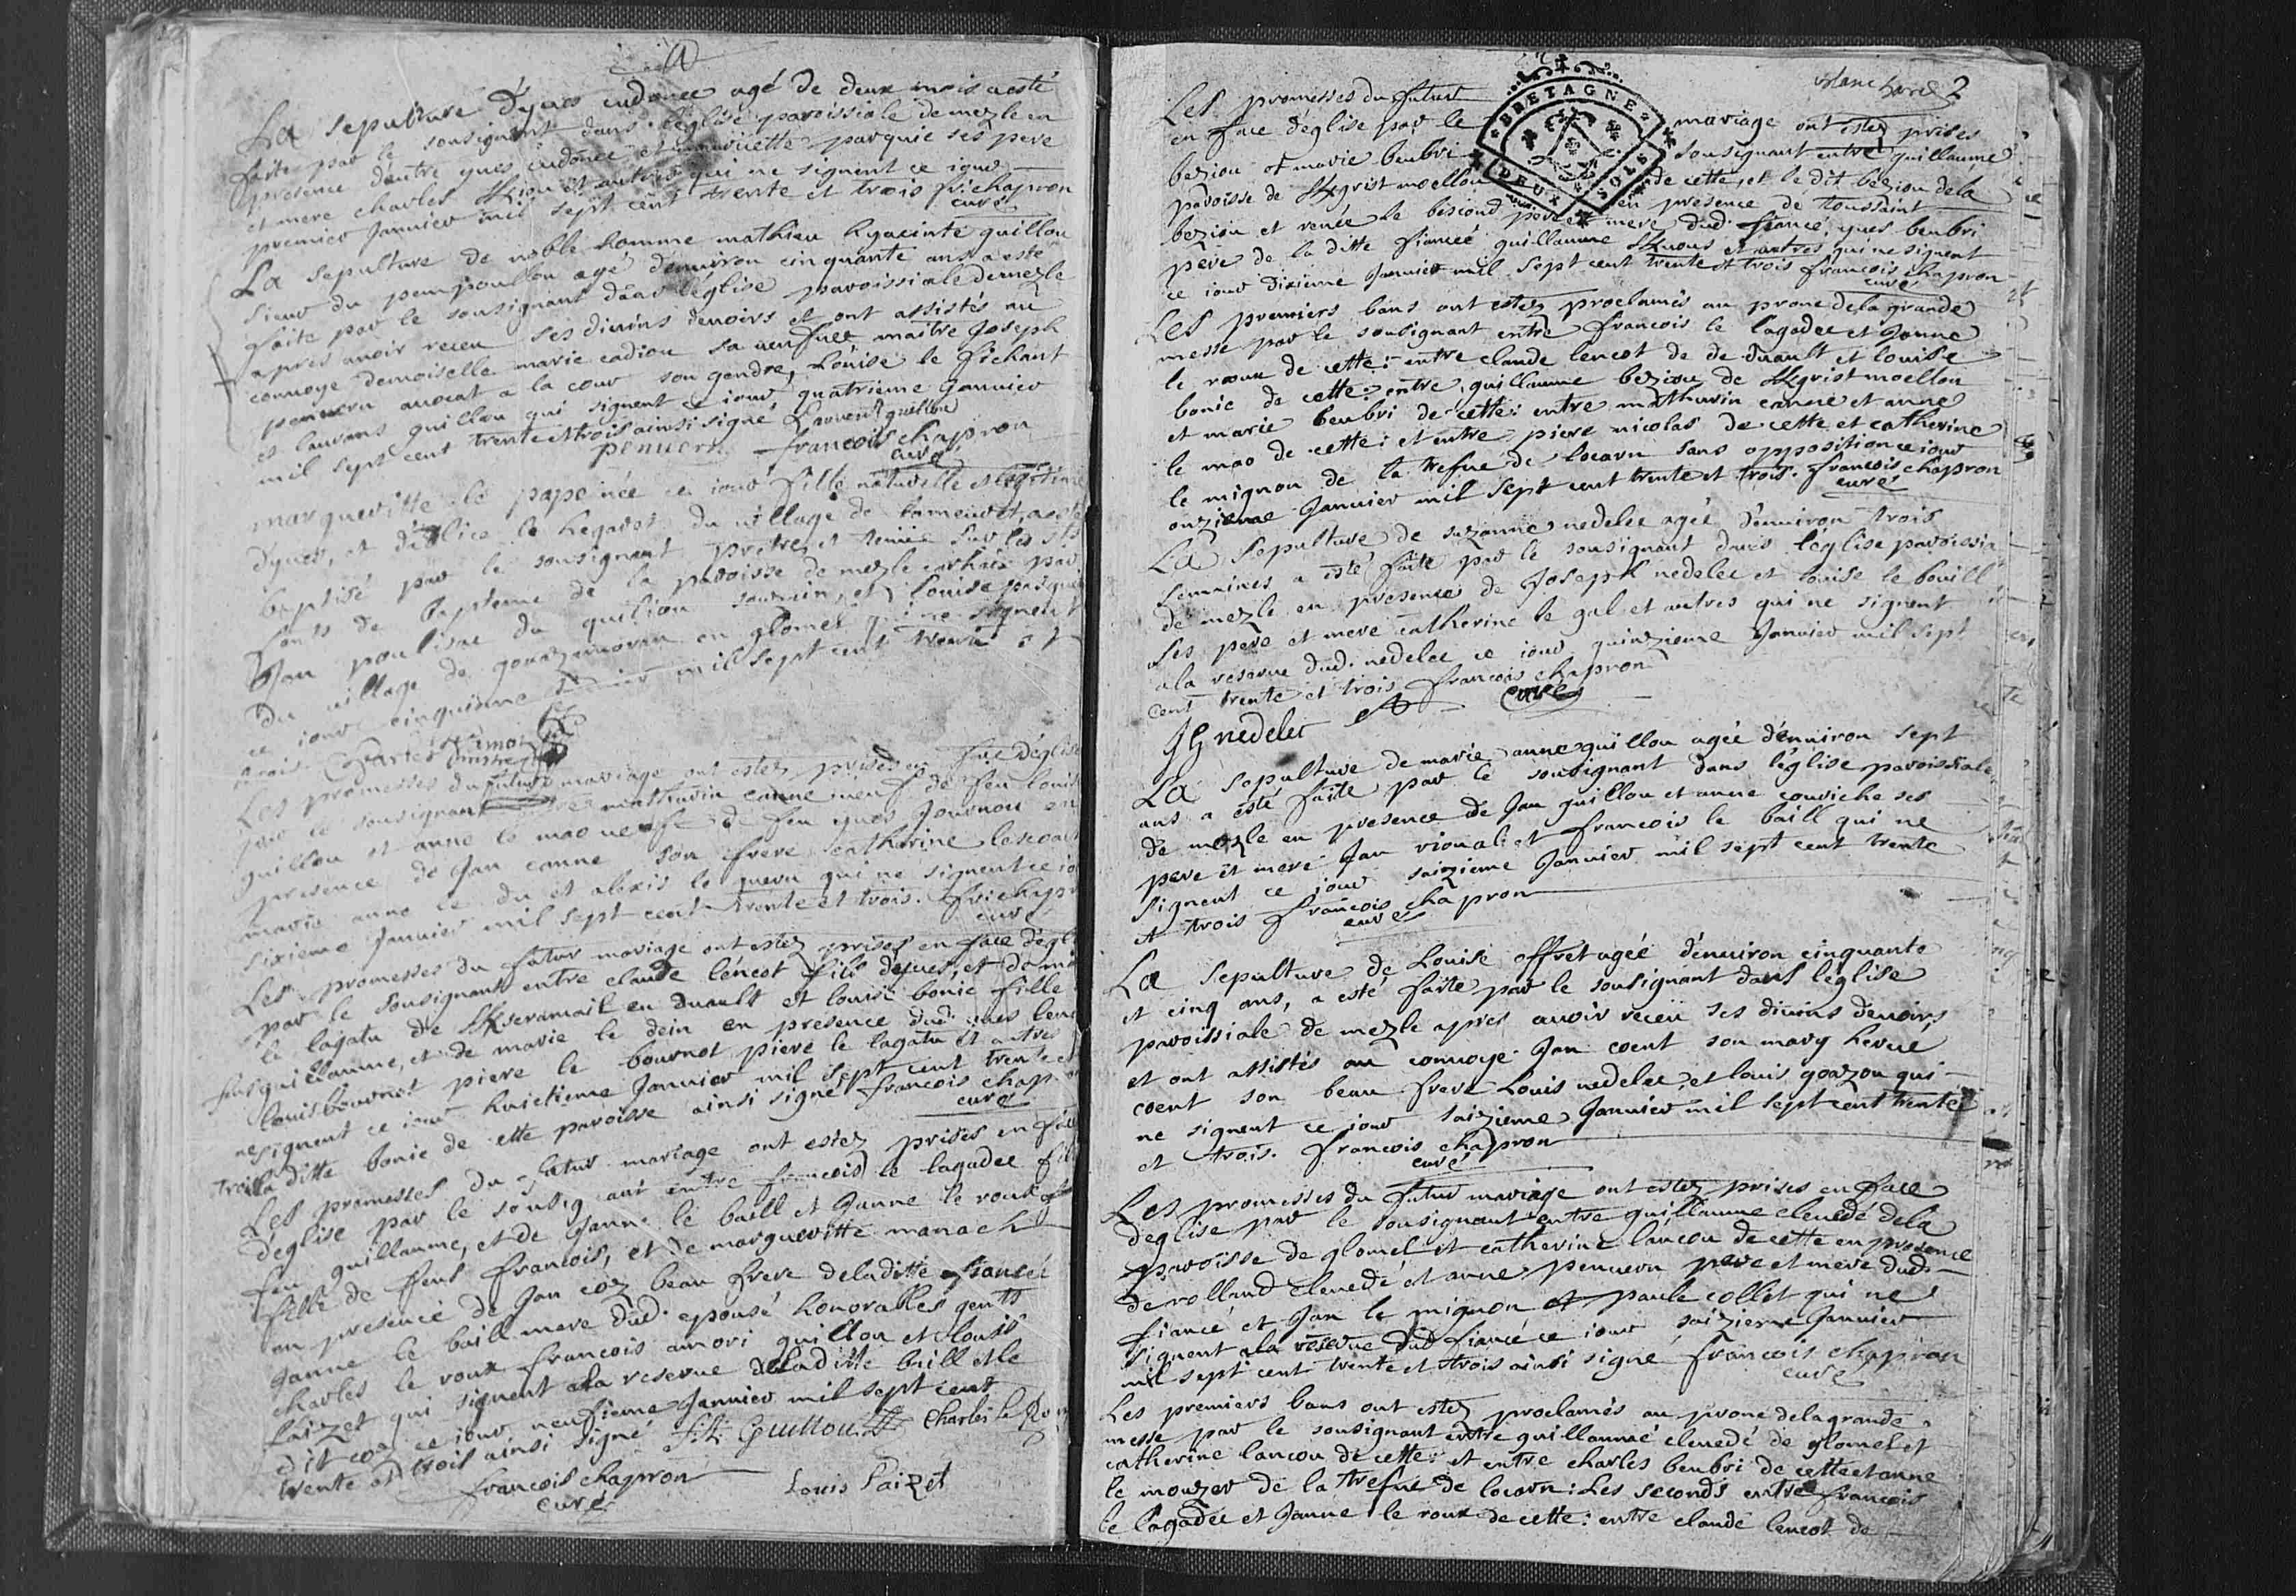 La sepulture d'yves cudonec agé de deux mois a esté
faite par le sousignant dans l'eglise paroissiale de mezle en
presence d'entre yves cudonec et mauricette parquic ses pere
et mere charles et autres qui ne signent ce jour
premier Janvier mil sept cent trente et trois f chapron
curé
La sepulture de noble homme mathieu hyacinte guillou
sieur du penpoullou agé d'environ cinquante ans a esté
faite par le sousignant dans l'eglise paroissiale de mezle
apres avoir receu ses divins devoirs et ont assistés au
convoye demoiselle marie cadiou sa veufve maitre Joseph
penvern avocat a la cour son gendre, Louise le fichant
et laurans guillou qui signent ce jour quatrieme Janvier
mil sept cent trente et trois ainsi signé Laurens guillou
penvern francois chapron
curé
margueritte le pape née ce jour fille naturelle et legitime
d'yves, et d'alice le hegarat du village de
baptisé par le sousignant prêtre et tenüe sur les sts
fonts de bapteme de la paroisse de mezle carhaix par
Jan poulisac du quiliou parrain, et Louise
du village de en glomel qui ne signent
ce jour cinquieme Janvier mil sept cent trente et
trois
Les promesses du futur mariage ont estez prises en face d'eglise
par le sousignant entre mathurin canne veuf de feu louise
guillou et anne le mao veufve de feu yves Jouanou en
presence de Jan canne son frere catherine
marie anne le du et alexis le guern qui ne signent ce jour
sixieme Janvier mil sept cent trente et trois. f chapron
curé
Les promesses du futur mariage ont estez prises en face d'eglise
par le sousignant entre claude lencot fils d'yves, et de
le lagatu de en duault et louise bonic fille
feu guillaume, et de marie le dein en presence dud. yves lencot
louis bournot piere le bournot piere le lagatu et autres
ne signent ce jour huictieme Janvier mil sept cent trente et
trois la ditte bonic de cette paroisse ainsi signé francois chapron
curé
Les promesses du futur mariage ont estez prises en face
d'eglise par le sousignant entre francois le lagadec fils
feu guillaume, et de Janne le baill et Janne le roux
fille de feus francois, et de margueritte manach
en presence de Jan coz beau frere de la ditte fiancée
Janne le baill mere dud. epousé honorables gents
charles le roux francois amori guillou et louis
Paizet qui signent a la reserve de la ditte baill et le
dit coz ce jour neufieme Janvier mil sept cent
trente et trois ainsi signé f: a: Guillou charles le Roux
francois chapron Louis Paizet
curé
2
Les promesses du futur mariage ont estez prises
en face d'eglise par le sousignant entre guillaume
beziou et marie beubri de cette, et le dit beziou de la
paroisse de Kergrist moellou en presence de toussaint
beziou et renée le biscond pere et mere dud. fiancé, yves beubri
pere de la ditte fiancée guillaume et autres qui ne signent
ce jour dixieme Janvier mil sept cent trente et trois francois chapron
curé
BRETAGNE
DEUX SOLS
Les premiers bans ont estez proclamés au prone de la grande
messe par le sousignant entre francois le lagadec et Janne
le roux de cette: entre claude lencot de de duault et louise
bonic de cette: entre guillaume beziou de Kergrist moellou
et marie beubri de cette: entre mathurin canne et anne
le mao de cette: et entre piere nicolas de cette et catherine
le mignon de la trefve de locarn sans opposition ce jour
onzieme Janvier mil sept cent trente et trois. francois chapron
curé
La sepulture de suzanne nedelec agée d'environ trois
semaines a esté faite par le sousignant dans l'eglise paroissiale
de mezle en presence de Joseph nedelec et louise le bouill
ses pere et mere catherine le gal et autres qui ne signent
a la reserve dud. nedelec ce jour quinzieme Janvier mil sept
cent trente et trois francois chapron
curé
nedelec
La sepulture de marie anne guillou agée d'environ sept
ans a esté faite par le sousignant dans l'eglise paroissiale
de mezle en presence de Jan guillou et anne couviche ses
pere et mere Jan rioual et francois le baill qui ne
signent ce jour saizieme Janvier mil sept cent trente
et trois francois chapron
curé
La sepulture de Louise offret agée d'environ cinquante
et cinq ans, a esté faite par le sousignant dans l'eglise
paroissiale de mezle apres avoir receu ses divins devoirs
et ont assistés au convoye Jan coent son mary hervé
coent son beau frere Louis nedelec, et louis goazou qui
ne signent ce jour saizieme Janvier mil sept cent trente
et trois. francois chapron
curé
Les promesses du futur mariage ont estez prises en face
d'eglise par le sousignant entre guillaume clevedé de la
paroisse de glomel et catherine lancou de cette en presence
de rolland clevedé et anne penvern pere et mere dud.
fiancé et Jan le mignon et paule collet qui ne
signent a la reserve dud fiancé ce jour saizieme Janvier
mil sept cent trente et trois ainsi signé francois chapron
curé
Les premiers bans ont estez proclamés au prone de la grande
messe par le sousignant entre guillaume clevedé de glomel et
catherine lancou de cette: et entre charles beubri de cette et anne
le mouzer de la trefve de locarn: Les seconds entre francois
le lagadec et Janne le roux de cette: entre claude lencot de